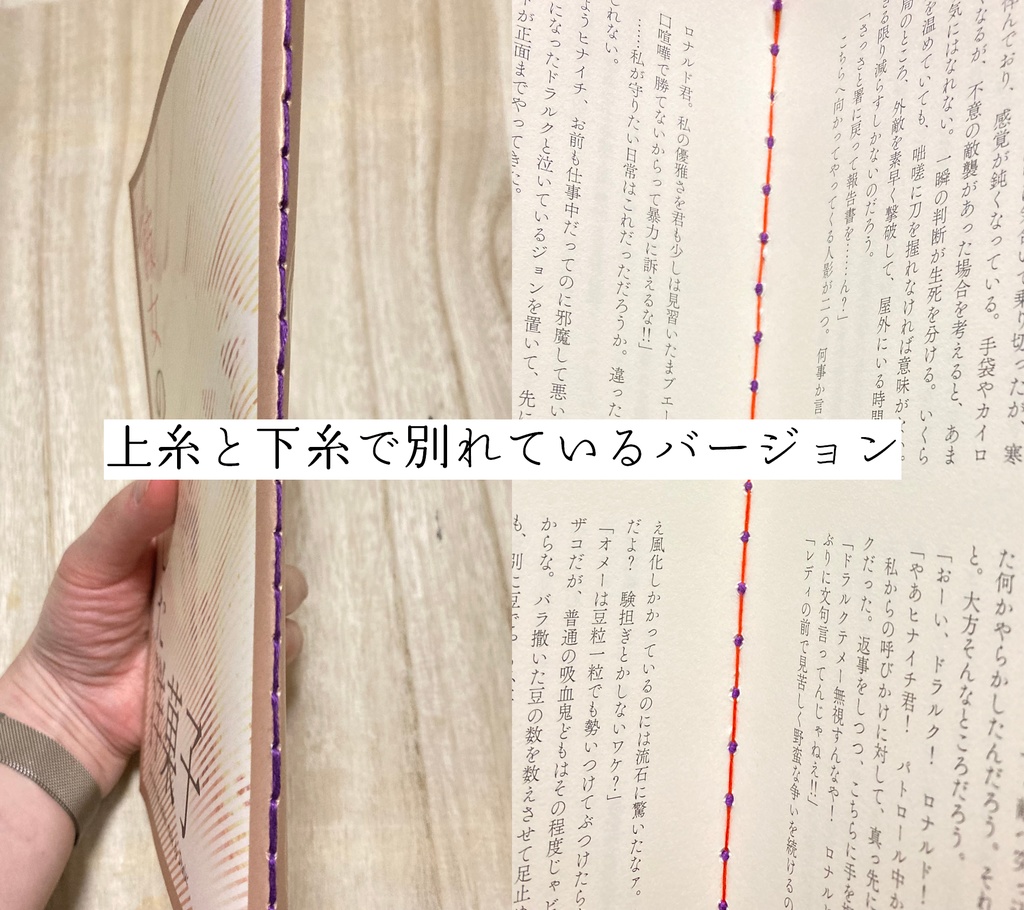 上糸と下糸で別れているバージョン
気にはなれない。一瞬の判断が生死を分ける。いくら
を温めていても、咄嗟に刀を握れなければ意味が
局のところ、外敵を素早く撃破して、屋外にいる時間
きる限り減らすしかないのだろう。
「さっさと署に戻って報告書を……ん?」
こちらへ向かってやってくる人影が二つ。何事か言
ロナルド君。私の優雅さを君も少しは見習いたまえ
口喧嘩で勝てないからって暴力に訴えるな!!」
……私が守りたい日常はこれだっただろうか。違った
しれない。
ようヒナイチ、お前も仕事中だってのに邪魔して悪い
になったドラルクと泣いているジョンを置いて、先に
が正面までやってきた。
た何かやらかしたんだろう。それ
と。大方そんなところだろう。
「おーい、ドラルク! ロナルド!
「やあヒナイチ君! パトロール中か
私からの呼びかけに対して、真っ先に
クだった。返事をしつつ、こちらに手を
「ドラルクテメー無視すんなや! ロナル
ぶりに文句言ってんじゃねえ!!」
「レディの前で見苦しく野蛮な争いを続けるの
え風化しかかっているのには流石に驚いたなァ。
だよ? 験担ぎとかしないワケ?」
「オメーは豆粒一粒でも勢いつけてぶつけたら
ザコだが、普通の吸血鬼どもはその程度じゃビ
からな。バラ撒いた豆の数を数えさせて足止